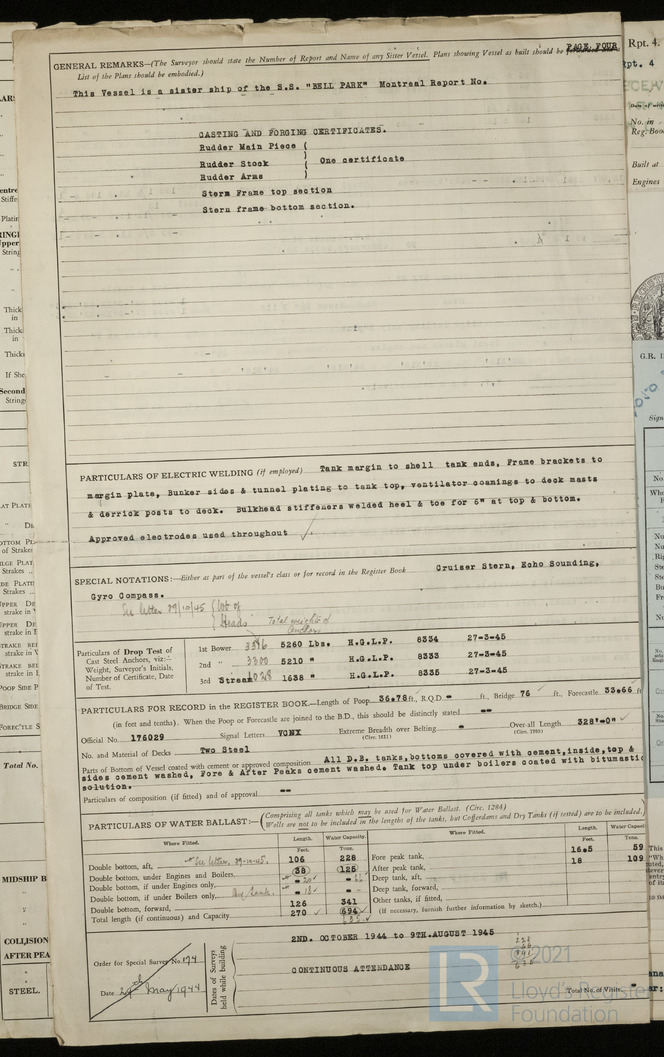 PAGE FOUR
GENERAL REMARKS—(The Surveyor should state the Number of Report and Name of any Sister Vessel. Plans showing Vessel as built should be
List of the Plans should be embodied.)
This Vessel is a sister ship of the S.S. "BELL PARK" Montreal Report No.
CASTING AND FORGING CERTIFICATES.
Rudder Main Piece (
Rudder Stock ( One certificate
Rudder Arms )
Stern Frame top section
Stern frame bottom section.
PARTICULARS OF ELECTRIC WELDING (if employed) Tank margin to shell tank ends, Frame brackets to
margin plate, Bunker sides & tunnel plating to tank top, ventilator coamings to deck masts
& derrick posts to deck. Bulkhead stiffeners welded heel & toe for 6" at top & bottom.
Approved electrodes used throughout
SPECIAL NOTATIONS:—Either as part of the vessel's class or for record in the Register Book Cruiser Stern, Echo Sounding,
Gyro Compass.
See letter 09/10/45
Heads
Total weights of
Particulars of Drop Test of
Cast Steel Anchors, viz:—
Weight, Surveyor's Initials,
Number of Certificate, Date
of Test.
1st Bower 3346 5260 Lbs. H.G.L.P. 8334 27-3-45
2nd " 3300 5210 " H.G.L.P. 8333 27-3-45
3rd Stream 1028 1638 " H.G.L.P. 8335 27-3-45
PARTICULARS FOR RECORD in the REGISTER BOOK—Length of Poop 36.78 ft., R.Q.D. - ft., Bridge 76 ft., Forecastle 33.66 ft
(in feet and tenths). When the Poop or Forecastle are joined to the B.D., this should be distinctly stated --
Official No. 176029 Signal Letters VGNX Extreme Breadth over Belting - Over-all Length 328'-0"
(Circ. 1611) (Circ. 1703)
No. and Material of Decks Two Steel
Parts of Bottom of Vessel coated with cement or approved composition All D.B. tanks,bottoms covered with cement,inside,top &
sides cement washed, Fore & After Peaks cement washed. Tank top under boilers coated with bitumastic
solution.
Particulars of composition (if fitted) and of approval --
PARTICULARS OF WATER BALLAST:—(Comprising all tanks which may be used for Water Ballast. (Circ. 1284)
Wells are not to be included in the lengths of the tanks, but Cofferdams and Dry Tanks (if tested) are to be included.)
Where Fitted. Length. Water Capacity. Where Fitted. Length. Water Capaci
Feet. Tons. Feet. Tons.
Double bottom, aft, See letter, 09-10-45. 106 228 Fore peak tank, 16.5 59
Double bottom, under Engines and Boilers, 38 125 After peak tank, 18 109
Double bottom, if under Engines only, Deep tank, aft,
Double bottom, if under Boilers only, Deep tank, forward,
Double bottom, forward, 126 341 Other tanks, if fitted,
Total length (if continuous) and Capacity 270 694 (If necessary, furnish further information by sketch.)
Order for Special Survey No. 174
Date May 1944
Dates of Surveys
held while building
2ND. OCTOBER 1944 to 9TH.AUGUST 1945
CONTINUOUS ATTENDANCE
Total No. of Visits. -
LR
© 2021
Lloyd's Register
Foundation
Rpt. 4.
Rpt. 4
No. in
Reg. Boo
Built at
Engines
Total No.
MIDSHIP B
COLLISION
AFTER PEA
STEEL.